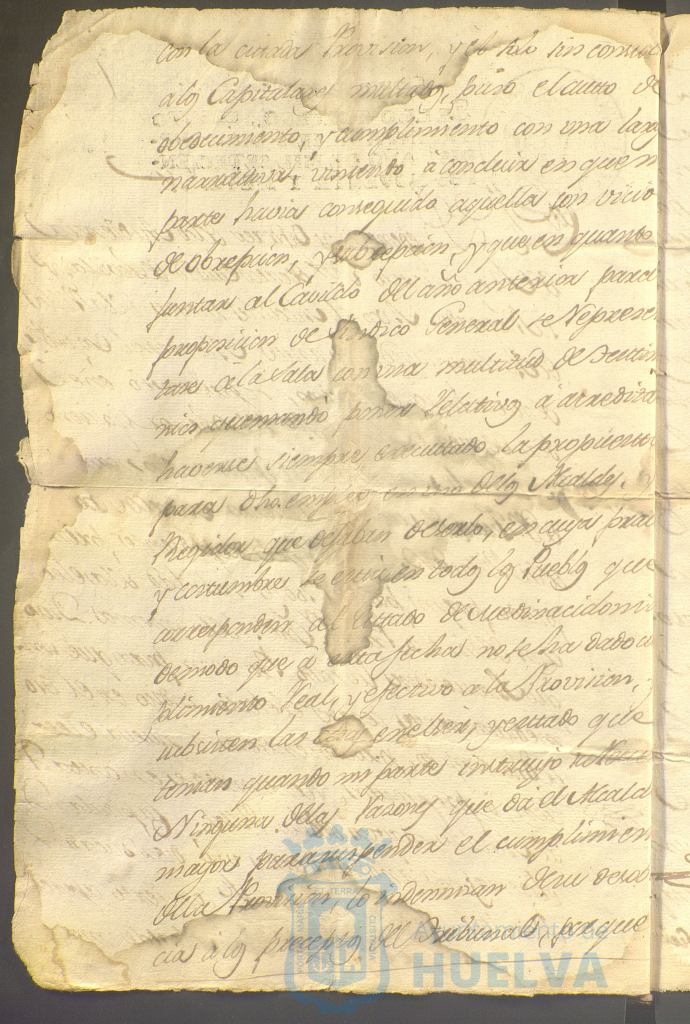 con la citada Provision, y el solo sin
a los Capitulares multados, puso el auto de
obedecimiento, y cumplimiento con una larg
narrativa, viniendo a concluir en que m
parte havia conseguido aquella con vicio
de obrepcion, y subrepcion, y que en quanto
juntar al Cavildo del año anterior para l
proposicion de Sindico General se Represen
tare a la Sala con una multitud de
havense siempre executado la propuesta
para dho. empleo en uno de los Alcaldes, y
Regidor que dejaban de serlo, en cuya prac
y costumbre se en todos los Pueblos que
corresponden al Estado de Medinacidoni
de modo que á esta fecha no se ha dado c
plimiento Real, y efectivo a la Provision, y
subsisten las en el ser, y estado que
tenian quando mi parte introdujo
Ninguna de las razones que dá el Alcald
mayor para suspender el cumplimien
de la Provision le indemnizan de su desove
cia á los preceptos del Tribunal, porque
Ayuntamiento de
HUELVA